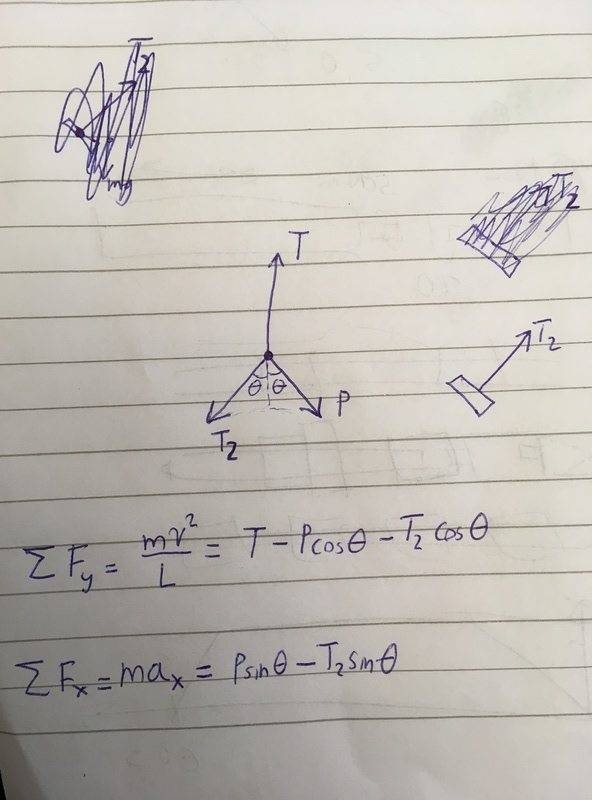 T₂
mg
T₂
T
T₂
θ θ
P
T₂
ΣF_y = mv²/L = T - Pcosθ - T₂ cosθ
ΣF_x = ma_x = Psinθ - T₂sinθ